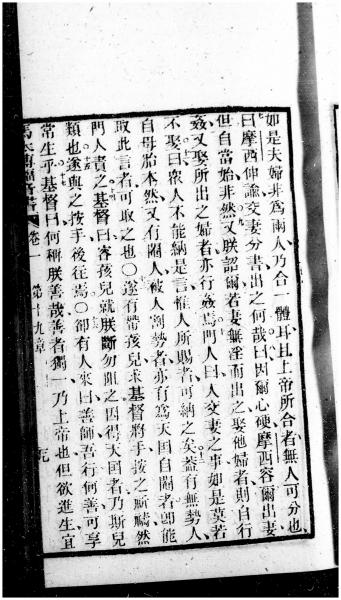 如是夫婦非爲兩人乃合一體耳且上帝所合者無人可分也
曰摩西伸諭交妻分書出之何哉曰因爾心硬摩西容爾出妻
但自當始非然又朕詔爾若妻無淫而出之娶他婦者則自行
姦又娶所出之婦者亦行姦焉門人曰人交妻之事如是莫若
不娶曰衆人不能納是言惟人所賜者可納之矣蓋有無勢人
自母胎本然又有閹人被人割勢者亦有爲天國自閹者卽能
取此言者可取之也〇遂有帶孩兒求基督將手按之祈禱然
門人責之基督曰容孩兒就朕斷勿阻之因得天國者乃斯兒
類也遂與之按手後往焉〇卻有人來曰善師吾行何善可享
常生乎基督曰何稱朕善哉善者獨一乃上帝也但欲進生宜
馬太傳福音書 卷一 第十九章 九